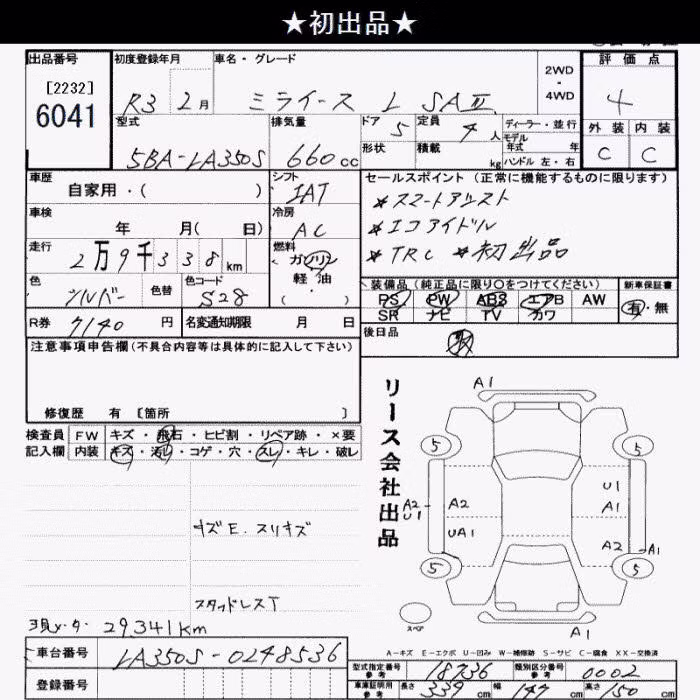 ★初出品★
出品番号 初度登録年月 車名・グレード 2WD - 4WD 評価点
[2232]
6041 R3 2月 ミライース L SAⅢ 4
型式 排気量 ドア 5 定員 4人 ディーラー・並行 外装 内装
モデル年式 年
5BA-LA350S 660cc 形状 積載 kg ハンドル 左・右 C C
車歴 シフト セールスポイント(正常に機能するものに限ります)
自家用・( ) IAT ★スマートアシスト
車検 冷房 ★エコアイドル
年 月( 日) AC ★TRC ★初出品
走行 燃料
2万9千338km ガソリン
軽油
( ・ )
色 色替 色コード 装備品(純正品に限り○をつけてください) 新車保証書
シルバー S28 PS PW ABS エアB AW 有・無
SR ナビ TV カワ
R券 7140円 名変通知期限 月 日 後日品
取
注意事項申告欄(不具合内容等は具体的に記入して下さい)
修復歴 有 [箇所 ]
リース会社出品
検査員 FW キズ・飛石・ヒビ割・リペア跡・×要
記入欄 内装 キズ・汚レ・コゲ・穴・スレ・キレ・破レ
キズE.スリキズ
スタッドレスT
現メーター 29,341km
A1
5 5
U1
A2 U1 A2 A1
UA1 A2 A1
5 5
スペア
A1
A-キズ E-エクボ U-凹み W-補修跡 S-サビ C-腐食 XX-交換済
車台番号 LA350S-0248536
型式指定番号 参考 18736 類別区分番号 参考 0002
登録番号
車庫証明用 参考 長さ 339cm 幅 147cm 高さ 150cm